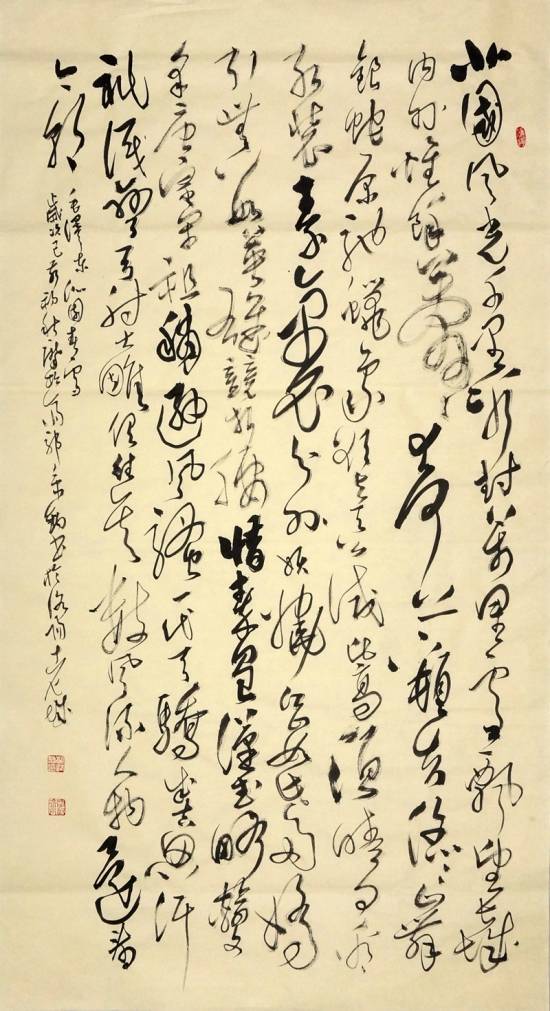 北國風光千里冰封萬里雪飄望長城
內外惟餘莽莽大河上下頓失滔滔山舞
銀蛇原馳蠟象欲與天公試比高須晴日看
紅裝素裹分外妖嬈江山如此多嬌
引無數英雄競折腰惜秦皇漢武略輸文
采唐宗宋祖稍遜風騷一代天驕成吉思汗
祇識彎弓射大雕俱往矣數風流人物還看
今朝
毛澤東沁園春雪
歲次己 書於洛陽